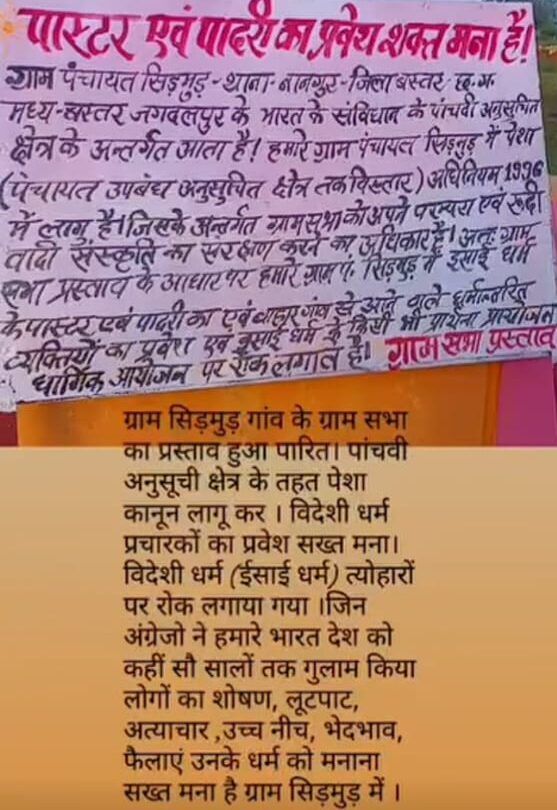 पास्टर एवं पादरी का प्रवेश शक्त मना है!
ग्राम पंचायत सिड़मुड़ - थाना - नानगुर - जिला बस्तर - छ.ग.
मध्य-बस्तर जगदलपुर के भारत के संविधान के पांचवी अनुसुचित
क्षेत्र के अन्तर्गत आता है! हमारे ग्राम पंचायत सिड़मुड़ में पेशा
(पंचायत उपबंध अनुसुचित क्षेत्र तक विस्तार) अधिनियम 1996
में लागु है। जिसके अन्तर्गत ग्राम सभा को अपने परम्परा एवं रूढ़ी
वादी संस्कृति का संरक्षण करने का अधिकार है। अतः ग्राम
सभा प्रस्ताव के आधार पर हमारे ग्राम पं. सिड़मुड़ में इसाई धर्म
के पास्टर एवं पादरी का एवं बाहर गांव से आने वाले धर्मान्तरित
व्यक्तियों का प्रवेश एवं इसाई धर्म के किसी भी प्रार्थना प्रायोजन
धार्मिक आयोजन पर रोक लगाते है। ग्राम सभा प्रस्ताव
ग्राम सिड़मुड़ गांव के ग्राम सभा
का प्रस्ताव हुआ पारित। पांचवी
अनुसूची क्षेत्र के तहत पेशा
कानून लागू कर । विदेशी धर्म
प्रचारकों का प्रवेश सख्त मना।
विदेशी धर्म (ईसाई धर्म) त्योहारों
पर रोक लगाया गया ।जिन
अंग्रेजो ने हमारे भारत देश को
कहीं सौ सालों तक गुलाम किया
लोगों का शोषण, लूटपाट,
अत्याचार ,उच्च नीच, भेदभाव,
फैलाएं उनके धर्म को मनाना
सख्त मना है ग्राम सिड़मुड़ में ।